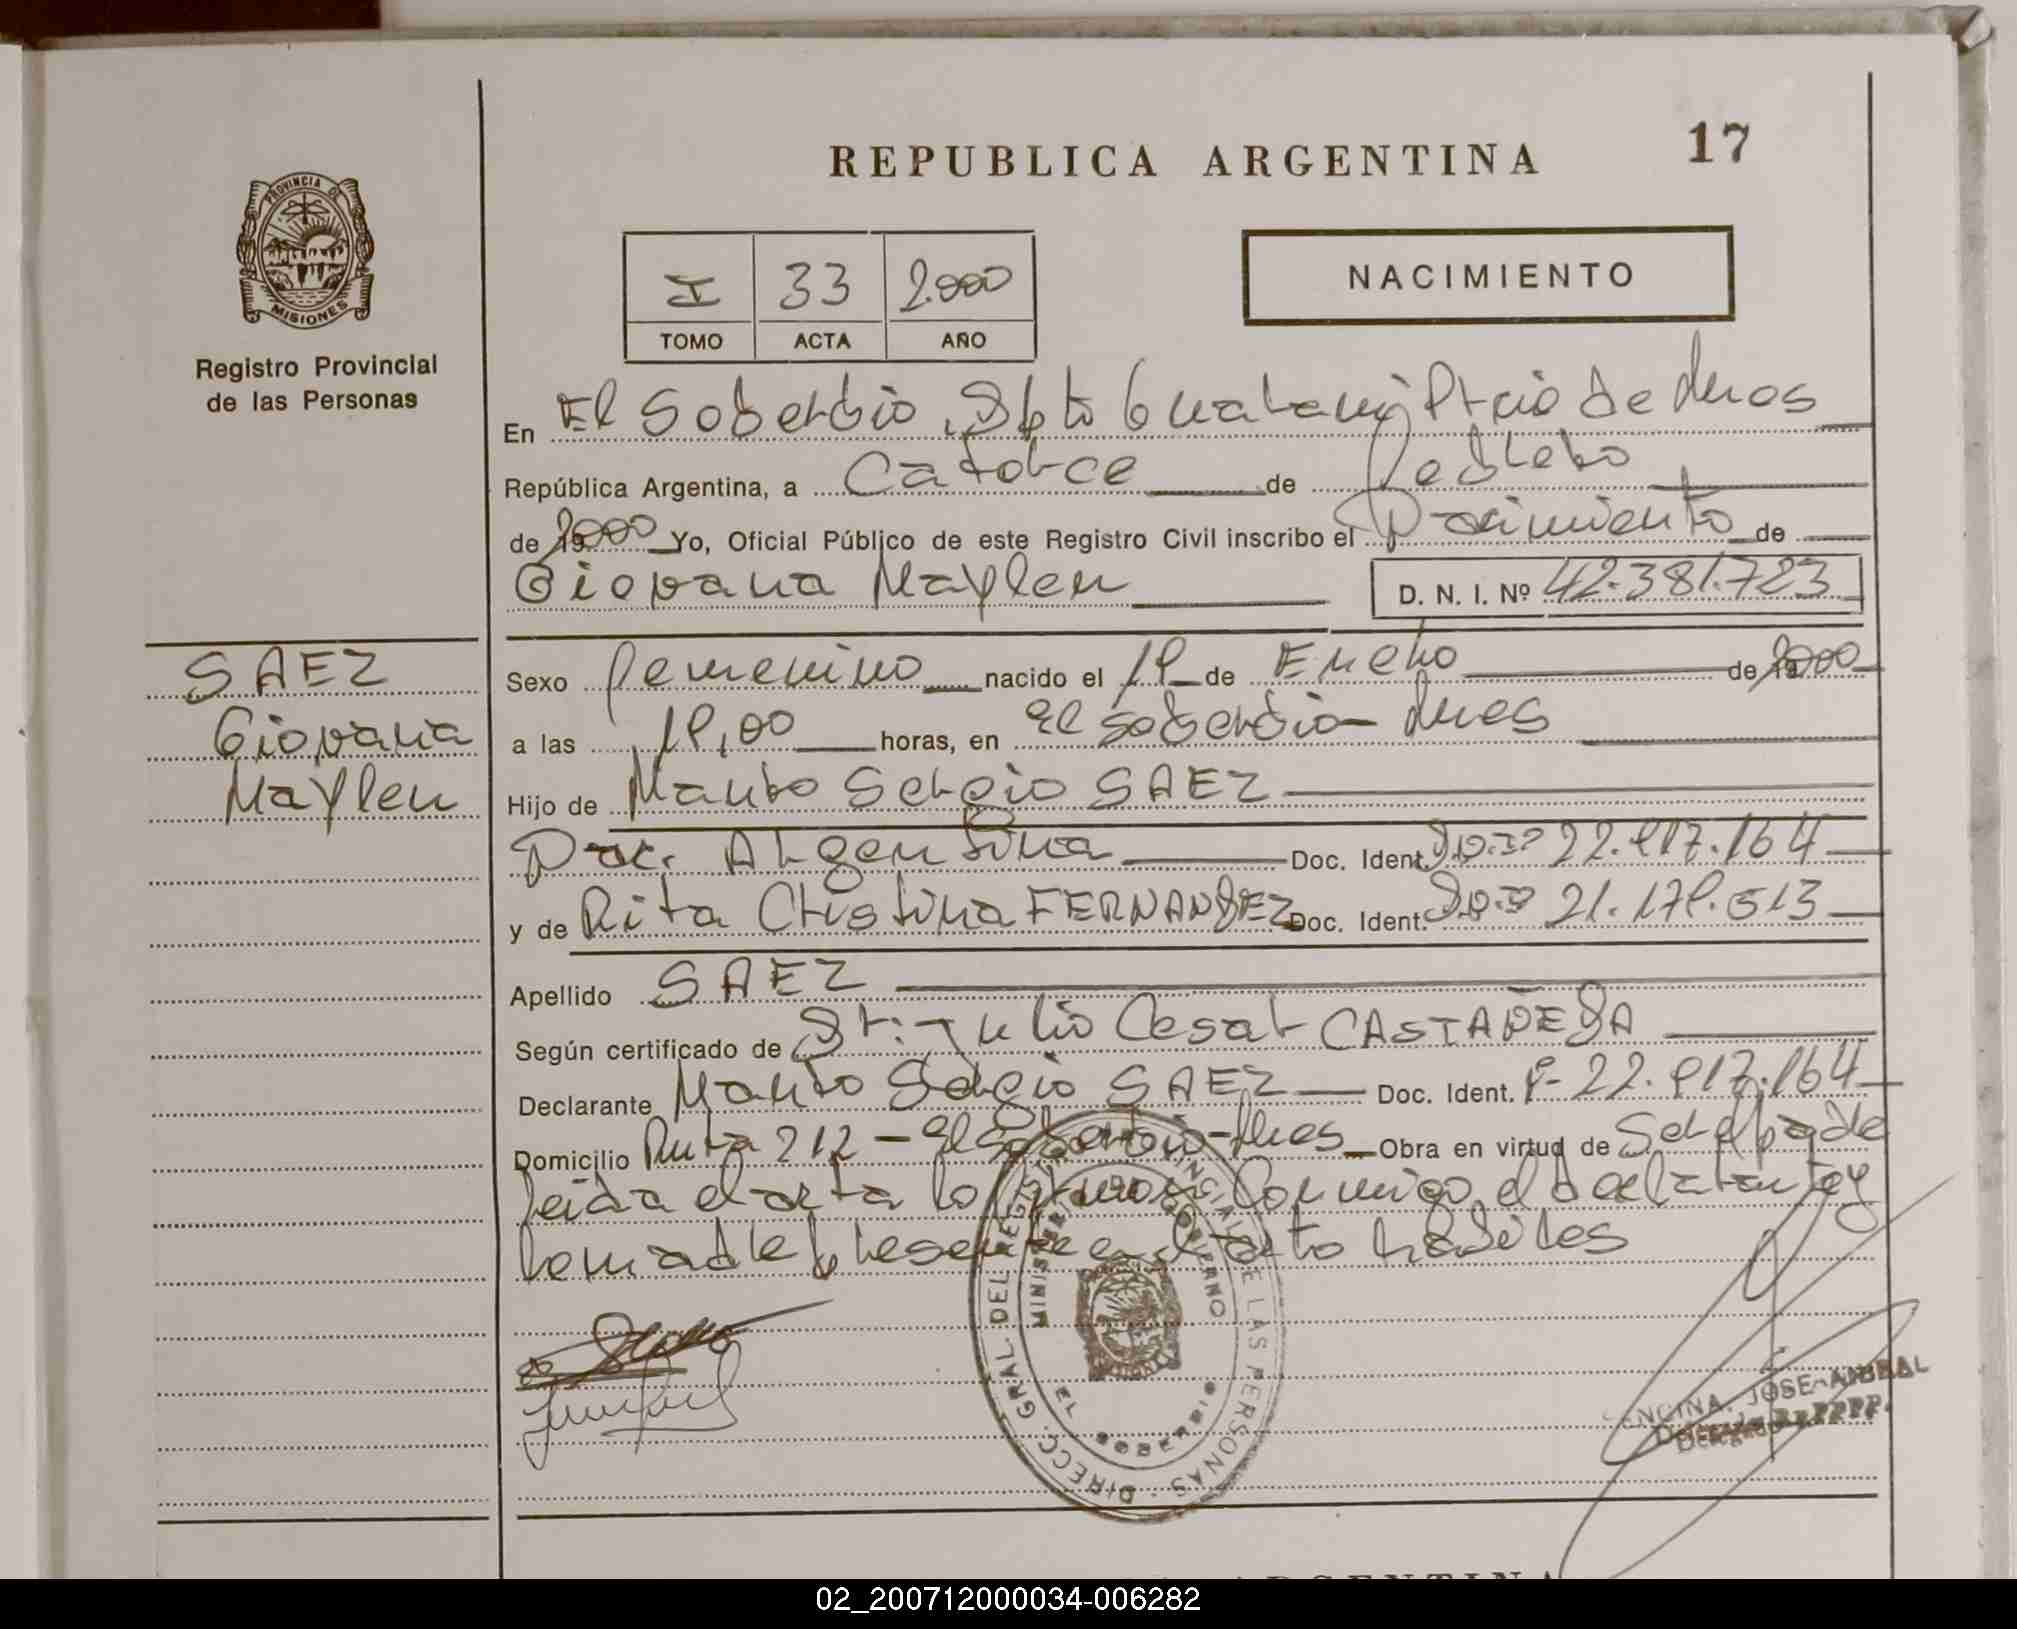 REPUBLICA ARGENTINA
17
PROVINCIA DE
MISIONES
Registro Provincial
de las Personas
I 33 2.000
TOMO ACTA AÑO
NACIMIENTO
En El Soberbio, Dpto Guarani Pcia de Mnes
República Argentina, a Catorce de Febrero
de 2000 Yo, Oficial Público de este Registro Civil inscribo el Nacimiento de
Giovana Maylen D. N. I. Nº 42.381.723
SAEZ
Giovana
Maylen
Sexo femenino nacido el 19 de Enero de 2000
a las 19,00 horas, en El Soberbio - Mnes
Hijo de Mauro Sergio SAEZ
Nac. Argentina Doc. Ident. D.N.I 22.917.164
y de Rita Cristina FERNANDEZ Doc. Ident. D.N.I 21.179.513
Apellido SAEZ
Según certificado de Dr. Julio Cesar CASTAÑEDA
Declarante Mauro Sergio SAEZ Doc. Ident. 22.917.164
Domicilio Ruta 212 - El Soberbio - Mnes Obra en virtud de
leida el acta lo firman Conmigo el declarante y
la madre presente en el acto
DIRECC. GRAL. DEL REG. PROVINCIAL DE LAS PERSONAS
MINISTERIO DE GOBIERNO
EL SOBERBIO
ENCINA, JOSE ANIBAL
Delegado R.P.P.P.
02_200712000034-006282